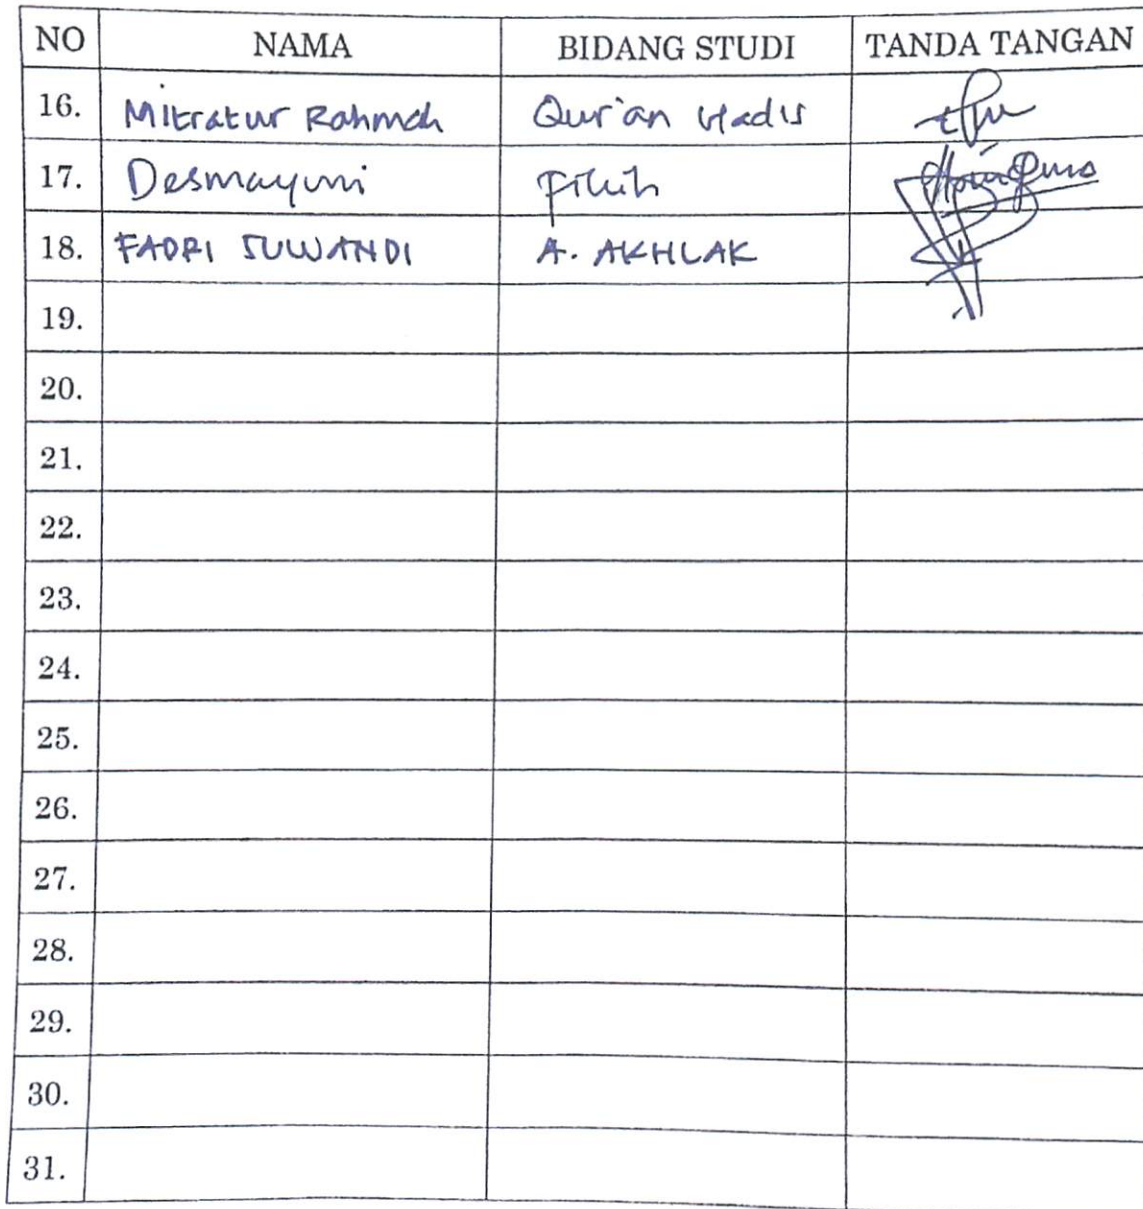 NO NAMA BIDANG STUDI TANDA TANGAN
16. Mitratur Rahmah Qur'an Hadis
17. Desmayuni Fikih
18. FADRI SUWANDI A. AKHLAK
19.
20.
21.
22.
23.
24.
25.
26.
27.
28.
29.
30.
31.